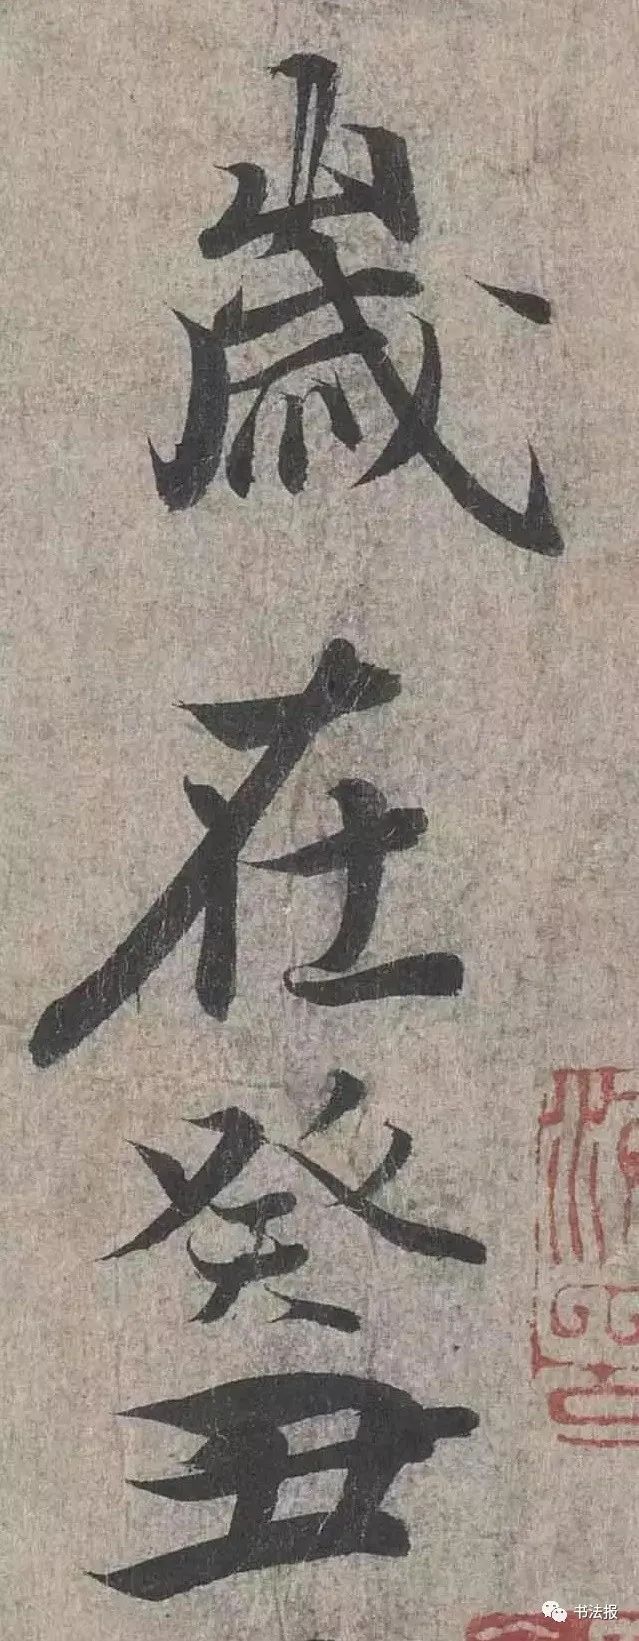 歲在癸丑
书法报